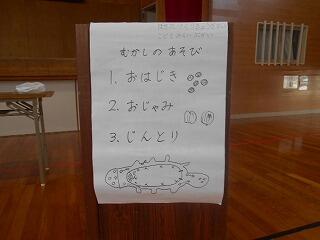 むかしの あそび
1. おはじき
2. おじゃみ
3. じんとり